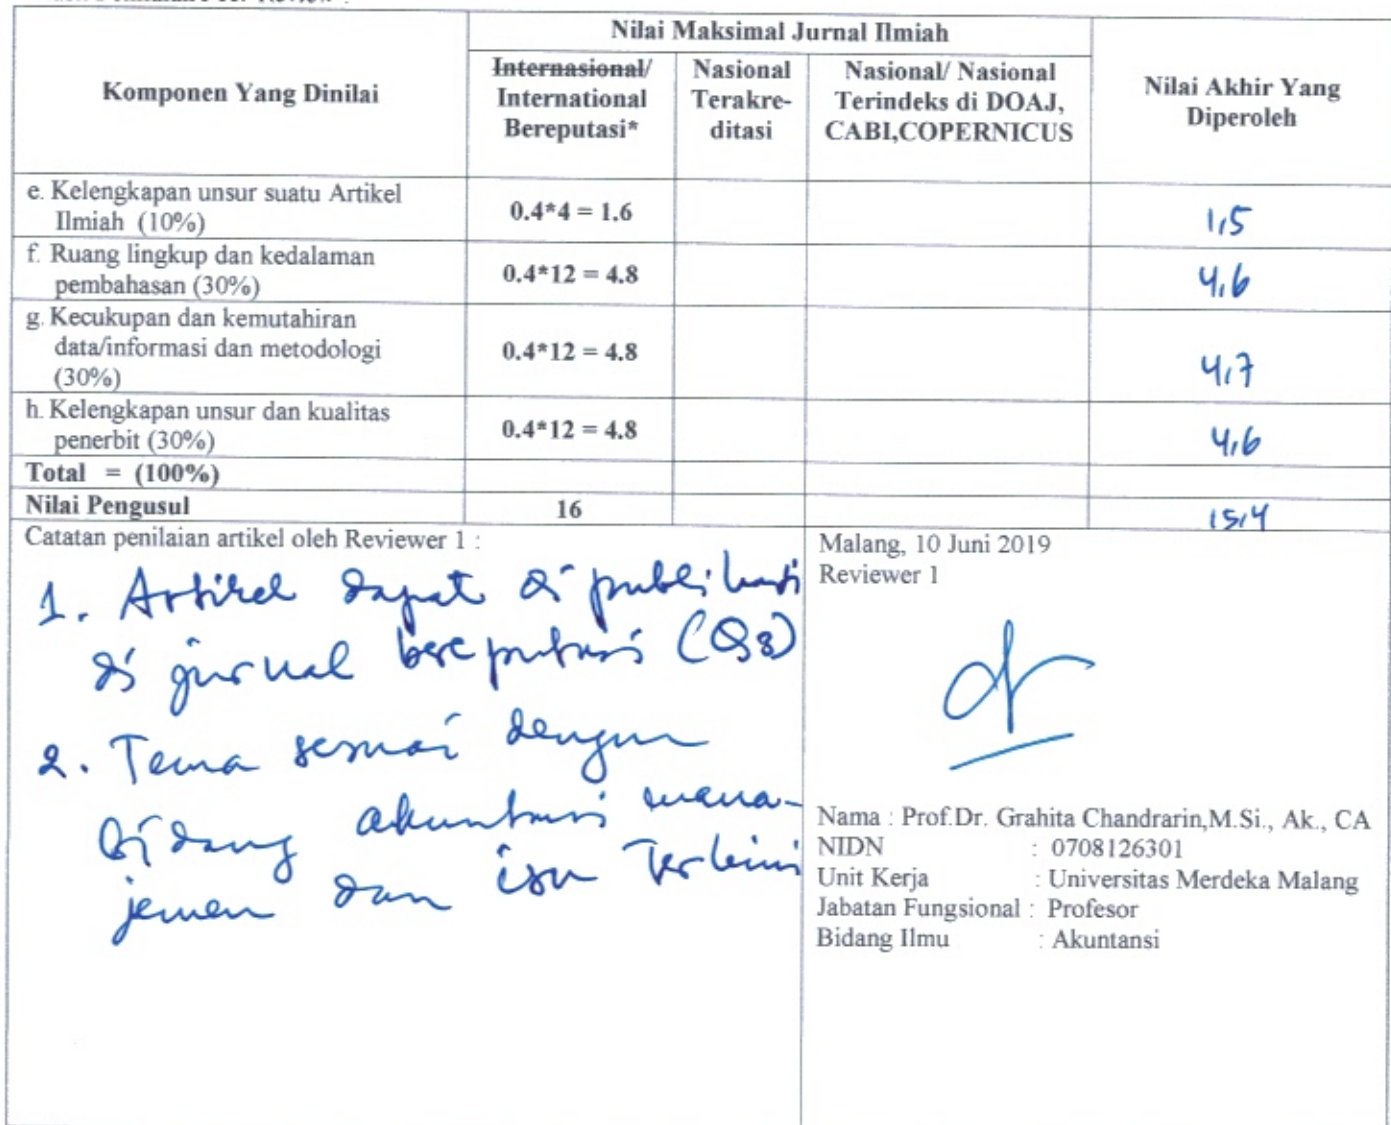 Nilai Maksimal Jurnal Ilmiah
Komponen Yang Dinilai
Internasional/
International
Bereputasi*
Nasional
Terakre-
ditasi
Nasional/ Nasional
Terindeks di DOAJ,
CABI,COPERNICUS
Nilai Akhir Yang
Diperoleh
e. Kelengkapan unsur suatu Artikel
Ilmiah (10%)
0.4*4 = 1.6
1,5
f. Ruang lingkup dan kedalaman
pembahasan (30%)
0.4*12 = 4.8
4,6
g. Kecukupan dan kemutahiran
data/informasi dan metodologi
(30%)
0.4*12 = 4.8
4,7
h. Kelengkapan unsur dan kualitas
penerbit (30%)
0.4*12 = 4.8
4,6
Total = (100%)
Nilai Pengusul
16
15,4
Catatan penilaian artikel oleh Reviewer 1 :
1. Artikel dapat di publikasi
di jurnal bereputasi (Q3)
2. Tema sesuai dengan
bidang akuntansi mana-
jemen dan isu terkini
Malang, 10 Juni 2019
Reviewer 1
Nama : Prof.Dr. Grahita Chandrarin,M.Si., Ak., CA
NIDN : 0708126301
Unit Kerja : Universitas Merdeka Malang
Jabatan Fungsional : Profesor
Bidang Ilmu : Akuntansi